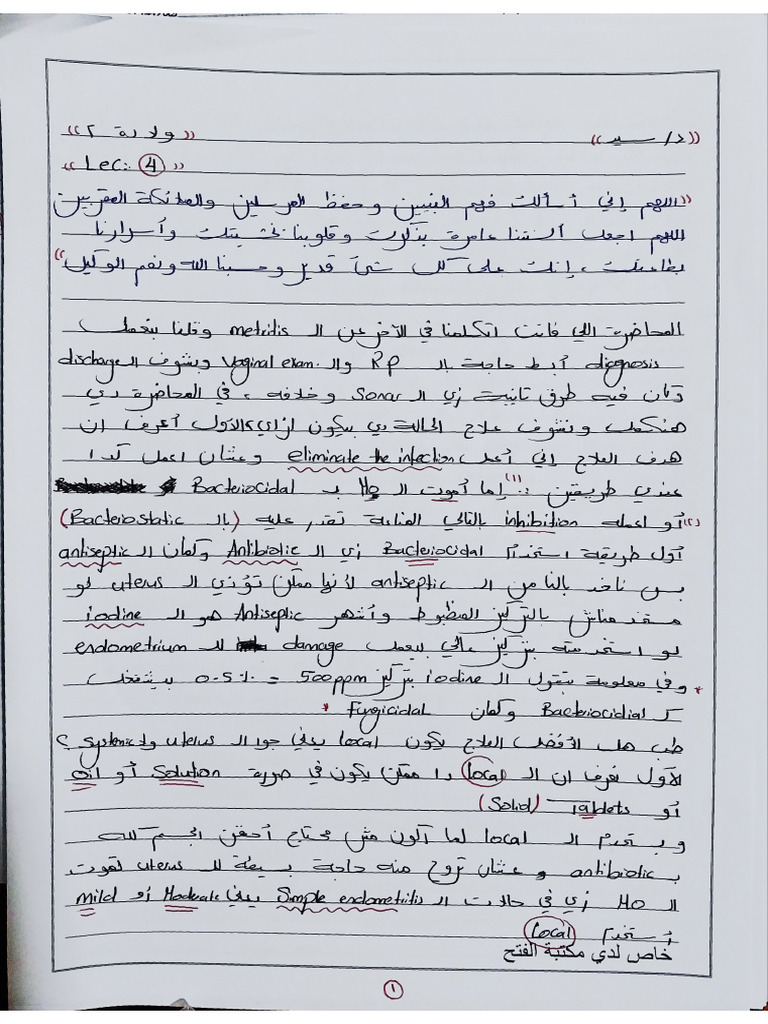 ((د/ سيد)) ((ولادة ٢))
((Lec: 4))
((اللهم إني أسألك فهم النبيين وحفظ المرسلين والملائكة المقربين
اللهم اجعل ألسنتنا عامرة بذكرك وقلوبنا بخشيتك وأسرارنا
بطاعتك، إنك على كل شئ قدير وحسبنا الله ونعم الوكيل))
المحاضرة اللي فاتت اتكلمنا في الآخر عن الـ metritis وقلنا بنعملـ
diagnosis أبسط حاجة بالـ RP والـ Vaginal exam. وبشوف الـ discharge
وكان فيه طرق تانية زي الـ Sonar وخلافه، في المحاضرة دي
هنكمل ونشوف علاج الحالة دي بيكون ازاي؟ الأول أعرف ان
هدف العلاج إني أعمل eliminate the infection وعشان اعمل كدا
عندي طريقين: (١) إما أموت الـ Mo بـ Bacteriocidal
(٢) أو اعمله inhibition بالتالي المناعة تقدر عليه (بالـ Bacteriostatic)
أول طريقة استخدم Bacteriocidal زي الـ Antibiotic وكمان الـ antiseptic
بس ناخد بالنا من الـ antiseptic لأنها ممكن تؤذي الـ uterus لو
مستخدمناش بالتركيز المظبوط وأشهر Antiseptic هو الـ iodine
لو استخدمته بتركيز عالي بيعمل damage للـ endometrium
* وفي معلومة بتقول الـ iodine بتركيز 500ppm = 0.5% بيشتغل
كـ Bacteriocidial وكمان Fungicidal *
طب هل الأفضل العلاج يكون local يعني جوا الـ uterus ولا systemic؟
الأول نعرف ان الـ local دا ممكن يكون في صورة Solution أو oil
أو Tablets (Solid)
وبستخدم الـ local لما أكون مش محتاج أحقن الجسم كله
بـ antibiotic وعشان تروح منه حاجة بسيطة للـ uterus تموت
الـ Mo زي في حالات الـ Simple endometritis يعني Moderate أو mild
أستخدم local
خاص لدي مكتبة الفتح
١